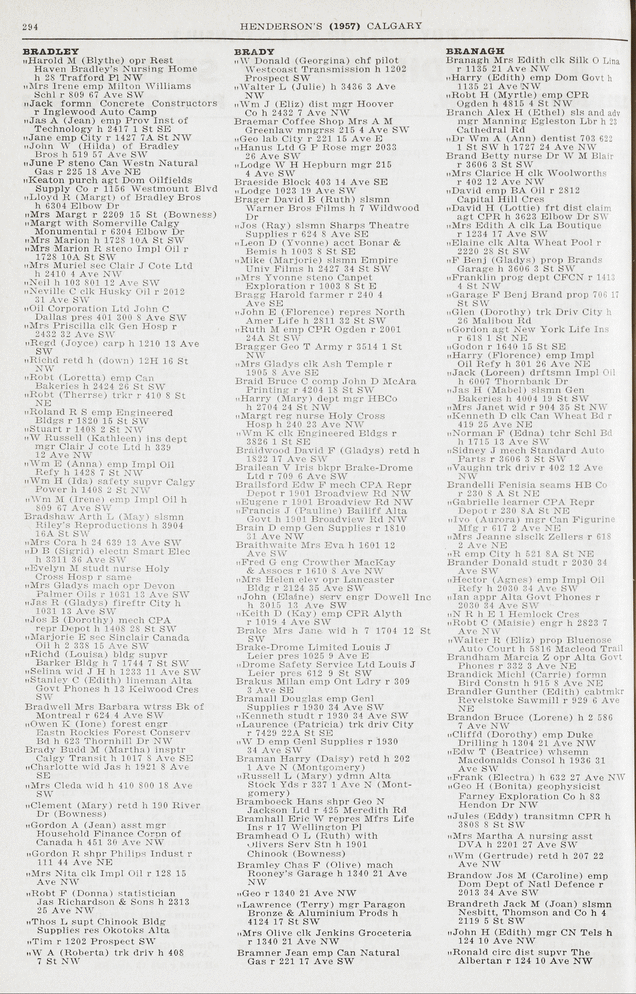 294
HENDERSON'S (1957) CALGARY
BRADLEY
"Harold M (Blythe) opr Rest
Haven Bradley's Nursing Home
h 28 Trafford Pl NW
"Mrs Irene emp Milton Williams
Schl r 809 67 Ave SW
"Jack formn Concrete Constructors
r Inglewood Auto Camp
"Jas A (Jean) emp Prov Inst of
Technology h 2417 1 St SE
"Jane emp City r 1427 7A St NW
"John W (Hilda) of Bradley
Bros h 519 57 Ave SW
"June P steno Can Westn Natural
Gas r 225 18 Ave NE
"Keaton purch agt Dom Oilfields
Supply Co r 1156 Westmount Blvd
"Lloyd R (Margt) of Bradley Bros
h 6304 Elbow Dr
"Mrs Margt r 2209 15 St (Bowness)
"Margt with Somerville Calgy
Monumental r 6304 Elbow Dr
"Mrs Marion h 1728 10A St SW
"Mrs Marion R steno Impl Oil r
1728 10A St SW
"Mrs Muriel sec Clair J Cote Ltd
h 2410 4 Ave NW
"Neil h 103 801 12 Ave SW
"Neville C clk Husky Oil r 2012
31 Ave SW
"Oil Corporation Ltd John C
Dallas pres 401 300 8 Ave SW
"Mrs Priscilla clk Gen Hosp r
2432 32 Ave SW
"Regd (Joyce) carp h 1210 13 Ave
SW
"Richd retd h (down) 12H 16 St
NW
"Robt (Loretta) emp Can
Bakeries h 2424 26 St SW
"Robt (Therrse) trkr r 410 8 St
NE
"Roland R S emp Engineered
Bldgs r 1820 15 St SW
"Stuart r 1408 2 St NW
"W Russell (Kathleen) ins dept
mgr Clair J cote Ltd h 339
12 Ave NW
"Wm E (Anna) emp Impl Oil
Refy h 1428 7 St NW
"Wm H (Ida) safety supvr Calgy
Power h 1408 2 St NW
"Wm M (Irene) emp Impl Oil h
809 67 Ave SW
Bradshaw Arth L (May) slsmn
Riley's Reproductions h 3904
16A St SW
"Mrs Cora h 24 639 13 Ave SW
"D B (Sigrid) electn Smart Elec
h 3311 36 Ave SW
"Evelyn M studt nurse Holy
Cross Hosp r same
"Mrs Gladys mach opr Devon
Palmer Oils r 1031 13 Ave SW
"Jas R (Gladys) fireftr City h
1031 13 Ave SW
"Jos B (Dorothy) mech CPA
repr Depot h 1408 28 St SW
"Marjorie E sec Sinclair Canada
Oil h 2 338 15 Ave SW
"Richd (Louisa) bldg supvr
Barker Bldg h 7 1744 7 St SW
"Selina wid J H h 1233 11 Ave SW
"Stanley C (Edith) lineman Alta
Govt Phones h 13 Kelwood Cres
SW
Bradwell Mrs Barbara wtrss Bk of
Montreal r 624 4 Ave SW
"Owen K (Ione) forest engr
Eastn Rockies Forest Conserv
Bd h 623 Thornhill Dr NW
Brady Budd M (Martha) insptr
Calgy Transit h 1017 8 Ave SE
"Charlotte wid Jas h 1921 8 Ave
SE
"Mrs Cleda wid h 410 800 18 Ave
SW
"Clement (Mary) retd h 190 River
Dr (Bowness)
"Gordon A (Jean) asst mgr
Household Finance Corpn of
Canada h 451 30 Ave NW
"Gordon R shpr Philips Indust r
111 44 Ave NE
"Mrs Nita clk Impl Oil r 128 15
Ave NW
"Robt F (Donna) statistician
Jas Richardson & Sons h 2313
25 Ave NW
"Thos L supt Chinook Bldg
Supplies res Okotoks Alta
"Tim r 1202 Prospect SW
"W A (Roberta) trk driv h 408
7 St NW
BRADY
"W Donald (Georgina) chf pilot
Westcoast Transmission h 1202
Prospect SW
"Walter L (Julie) h 3436 3 Ave
NW
"Wm J (Eliz) dist mgr Hoover
Co h 2432 7 Ave NW
Braemar Coffee Shop Mrs A M
Greenlaw mngrss 215 4 Ave SW
"Geo lab City r 221 15 Ave E
"Hanus Ltd G P Rose mgr 2033
26 Ave SW
"Lodge W H Hepburn mgr 215
4 Ave SW
Braeside Block 403 14 Ave SE
"Lodge 1023 19 Ave SW
Brager David B (Ruth) slsmn
Warner Bros Films h 7 Wildwood
Dr
"Jos (Ray) slsmn Sharps Theatre
Supplies r 624 8 Ave SE
"Leon D (Yvonne) acct Bonar &
Bemis h 1003 8 St SE
"Mike (Marjorie) slsmn Empire
Univ Films h 2427 34 St SW
"Mrs Yvonne steno Canpet
Exploration r 1003 8 St E
Bragg Harold farmer r 240 4
Ave SE
"John E (Florence) repres North
Amer Life h 2811 32 St SW
"Ruth M emp CPR Ogden r 2001
24A St SW
Bragger Geo T Army r 3514 1 St
NW
"Mrs Gladys clk Ash Temple r
1905 8 Ave SE
Braid Bruce C comp John D McAra
Printing r 4204 18 St SW
"Harry (Mary) dept mgr HBCo
h 2704 24 St NW
"Margt reg nurse Holy Cross
Hosp h 240 23 Ave NW
"Wm K clk Engineered Bldgs r
3826 1 St SE
Braidwood David F (Gladys) retd h
1822 17 Ave SW
Brailean V Iris bkpr Brake-Drome
Ltd r 709 6 Ave SW
Brailsford Edw F mech CPA Repr
Depot r 1901 Broadview Rd NW
"Eugene r 1901 Broadview Rd NW
"Francis J (Pauline) Bailiff Alta
Govt h 1901 Broadview Rd NW
Brain D emp Gen Supplies r 1810
31 Ave NW
Braithwaite Mrs Eva h 1601 12
Ave SW
"Fred G eng Crowther MacKay
& Assocs r 1610 8 Ave NW
"Mrs Helen elev opr Lancaster
Bldg r 2124 35 Ave SW
"John (Elaine) serv engr Dowell Inc
h 3015 13 Ave SW
"Keith D (Kay) emp CPR Alyth
r 1019 4 Ave SW
Brake Mrs Jane wid h 7 1704 12 St
SW
Brake-Drome Limited Louis J
Leier pres 1025 9 Ave E
"Drome Safety Service Ltd Louis J
Leier pres 612 9 St SW
Brakus Milan emp Ont Ldry r 309
3 Ave SE
Bramall Douglas emp Genl
Supplies r 1930 34 Ave SW
"Kenneth studt r 1930 34 Ave SW
"Laurence (Patricia) trk driv City
r 7429 22A St SE
"W D emp Genl Supplies r 1930
34 Ave SW
Braman Harry (Daisy) retd h 202
1 Ave N (Montgomery)
"Russell L (Mary) ydmn Alta
Stock Yds r 337 1 Ave N (Mont-
gomery)
Bramboeck Hans shpr Geo N
Jackson Ltd r 425 Meredith Rd
Bramhall Eric W repres Mfrs Life
Ins r 17 Wellington Pl
Bramhead O L (Ruth) with
Olivers Serv Stn h 1901
Chinook (Bowness)
Bramley Chas F (Olive) mach
Rooney's Garage h 1340 21 Ave
NW
"Geo r 1340 21 Ave NW
"Lawrence (Terry) mgr Paragon
Bronze & Aluminium Prods h
4124 17 St SW
"Mrs Olive clk Jenkins Groceteria
r 1340 21 Ave NW
Bramner Jean emp Can Natural
Gas r 221 17 Ave SW
BRANAGH
Branagh Mrs Edith clk Silk O Lina
r 1135 21 Ave NW
"Harry (Edith) emp Dom Govt h
1135 21 Ave NW
"Robt H (Myrtle) emp CPR
Ogden h 4815 4 St NW
Branch Alex H (Ethel) sls and adv
mgr Manning Egleston Lbr h 23
Cathedral Rd
"Dr Wm A (Ann) dentist 703 622
1 St SW h 1727 24 Ave NW
Brand Betty nurse Dr W M Blair
r 3606 3 St SW
"Mrs Clarice H clk Woolworths
r 402 12 Ave NW
"David emp BA Oil r 2812
Capital Hill Cres
"David H (Lottie) frt dist claim
agt CPR h 3623 Elbow Dr SW
"Mrs Edith A clk La Boutique
r 1234 17 Ave SW
"Elaine clk Alta Wheat Pool r
2220 28 St SW
"F Benj (Gladys) prop Brands
Garage h 3606 3 St SW
"Franklin prog dept CFCN r 1413
4 St NW
"Garage F Benj Brand prop 706 17
St SW
"Glen (Dorothy) trk Driv City h
26 Malibou Rd
"Gordon agt New York Life Ins
r 618 1 St NE
"Godon r 1640 15 St SE
"Harry (Florence) emp Impl
Oil Refy h 301 26 Ave NE
"Jack (Loreen) drftsmn Impl Oil
h 6007 Thornbank Dr
"Jas H (Mabel) slsmn Gen
Bakeries h 4004 19 St SW
"Mrs Janet wid r 904 35 St NW
"Kenneth D clk Can Wheat Bd r
419 25 Ave NE
"Norman F (Edna) tchr Schl Bd
h 1715 13 Ave SW
"Sidney J mech Standard Auto
Parts r 3606 3 St SW
"Vaughn trk driv r 402 12 Ave
NW
Brandelli Fenisia seams HB Co
r 230 8 A St NE
"Gabrielle learner CPA Repr
Depot r 230 8A St NE
"Ivo (Aurora) mgr Can Figurine
Mfg r 617 2 Ave NE
"Mrs Jeanne slsclk Zellers r 618
2 Ave NE
"R emp City h 521 8A St NE
Brander Donald studt r 2030 34
Ave SW
"Hector (Agnes) emp Impl Oil
Refy h 2030 34 Ave SW
"Ian appr Alta Govt Phones r
2030 34 Ave SW
"N R h E 1 Hemlock Cres
"Robt C (Maisie) engr h 2823 7
Ave NW
"Walter R (Eliz) prop Bluenose
Auto Court h 5816 Macleod Trail
Brandham Marcia Z opr Alta Govt
Phones r 332 3 Ave NE
Brandick Michl (Carrie) formn
Bird Constn h 915 8 Ave NE
Brandler Gunther (Edith) cabtmkr
Revelstoke Sawmill r 929 6 Ave
NE
Brandon Bruce (Lorene) h 2 586
7 Ave NW
"Cliffd (Dorothy) emp Duke
Drilling h 1304 21 Ave NW
"Edw T (Beatrice) whsemn
Macdonalds Consol h 1936 31
Ave SW
"Frank (Electra) h 632 27 Ave NW
"Geo H (Bonita) geophysicist
Farney Exploration Co h 83
Hendon Dr NW
"Jules (Eddy) transitmn CPR h
3808 8 St SW
"Mrs Martha A nursing asst
DVA h 2201 27 Ave SW
"Wm (Gertrude) retd h 207 22
Ave NW
Brandow Jos M (Caroline) emp
Dom Dept of Natl Defence r
2013 34 Ave SW
Brandreth Jack M (Joan) slsmn
Nesbitt, Thomson and Co h 4
2119 5 St SW
"John H (Edith) mgr CN Tels h
124 10 Ave NW
"Ronald circ dist supvr The
Albertan r 124 10 Ave NW